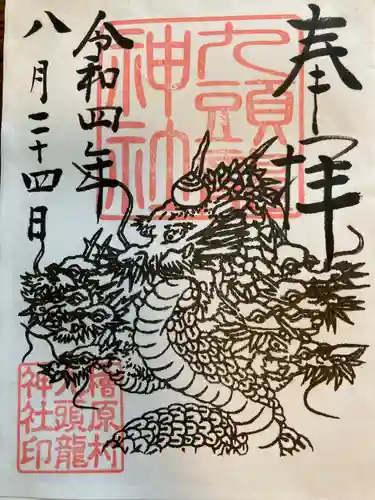 奉拝
九頭龍
神社
令和四年
八月二十四日
檜原村
九頭龍
神社印